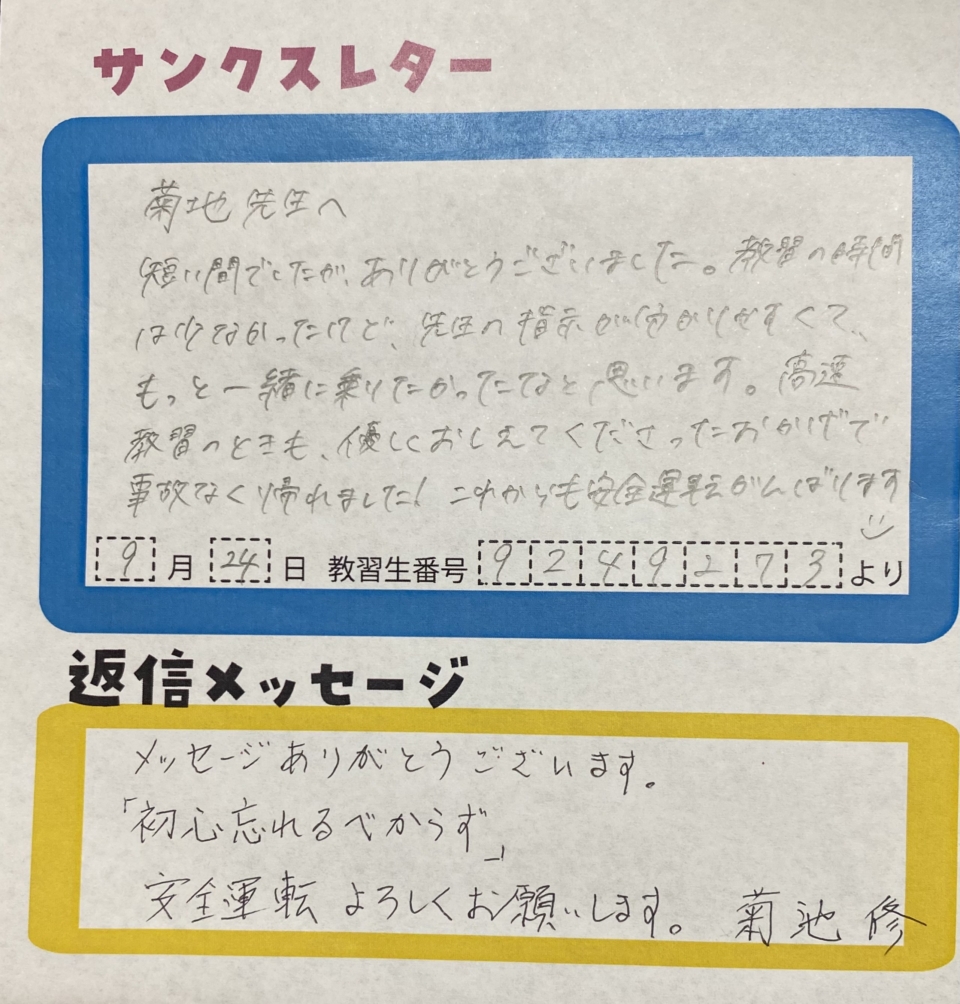 サンクスレター
菊地先生へ
短い間でしたが、ありがとうございました。教習の時間
は少なかったけど、先生の指示が分かりやすくて、
もっと一緒に乗りたかったなと思います。高速
教習のときも、優しくおしえてくださったおかげで
事故なく帰れました！これからも安全運転がんばります
9月24日 教習生番号 9249273より
返信メッセージ
メッセージありがとうございます。
「初心忘れるべからず」
安全運転よろしくお願いします。菊池修